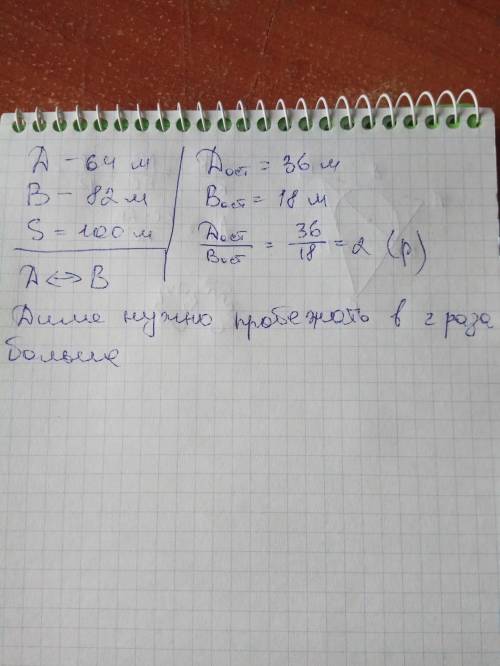 Д – 64 м
В – 82 м
S = 100 м
Д <=> В
Дост = 36 м
Вост = 18 м
Дост/Вост = 36/18 = 2 (р)
Диме нужно пробежать в 2 раза
больше